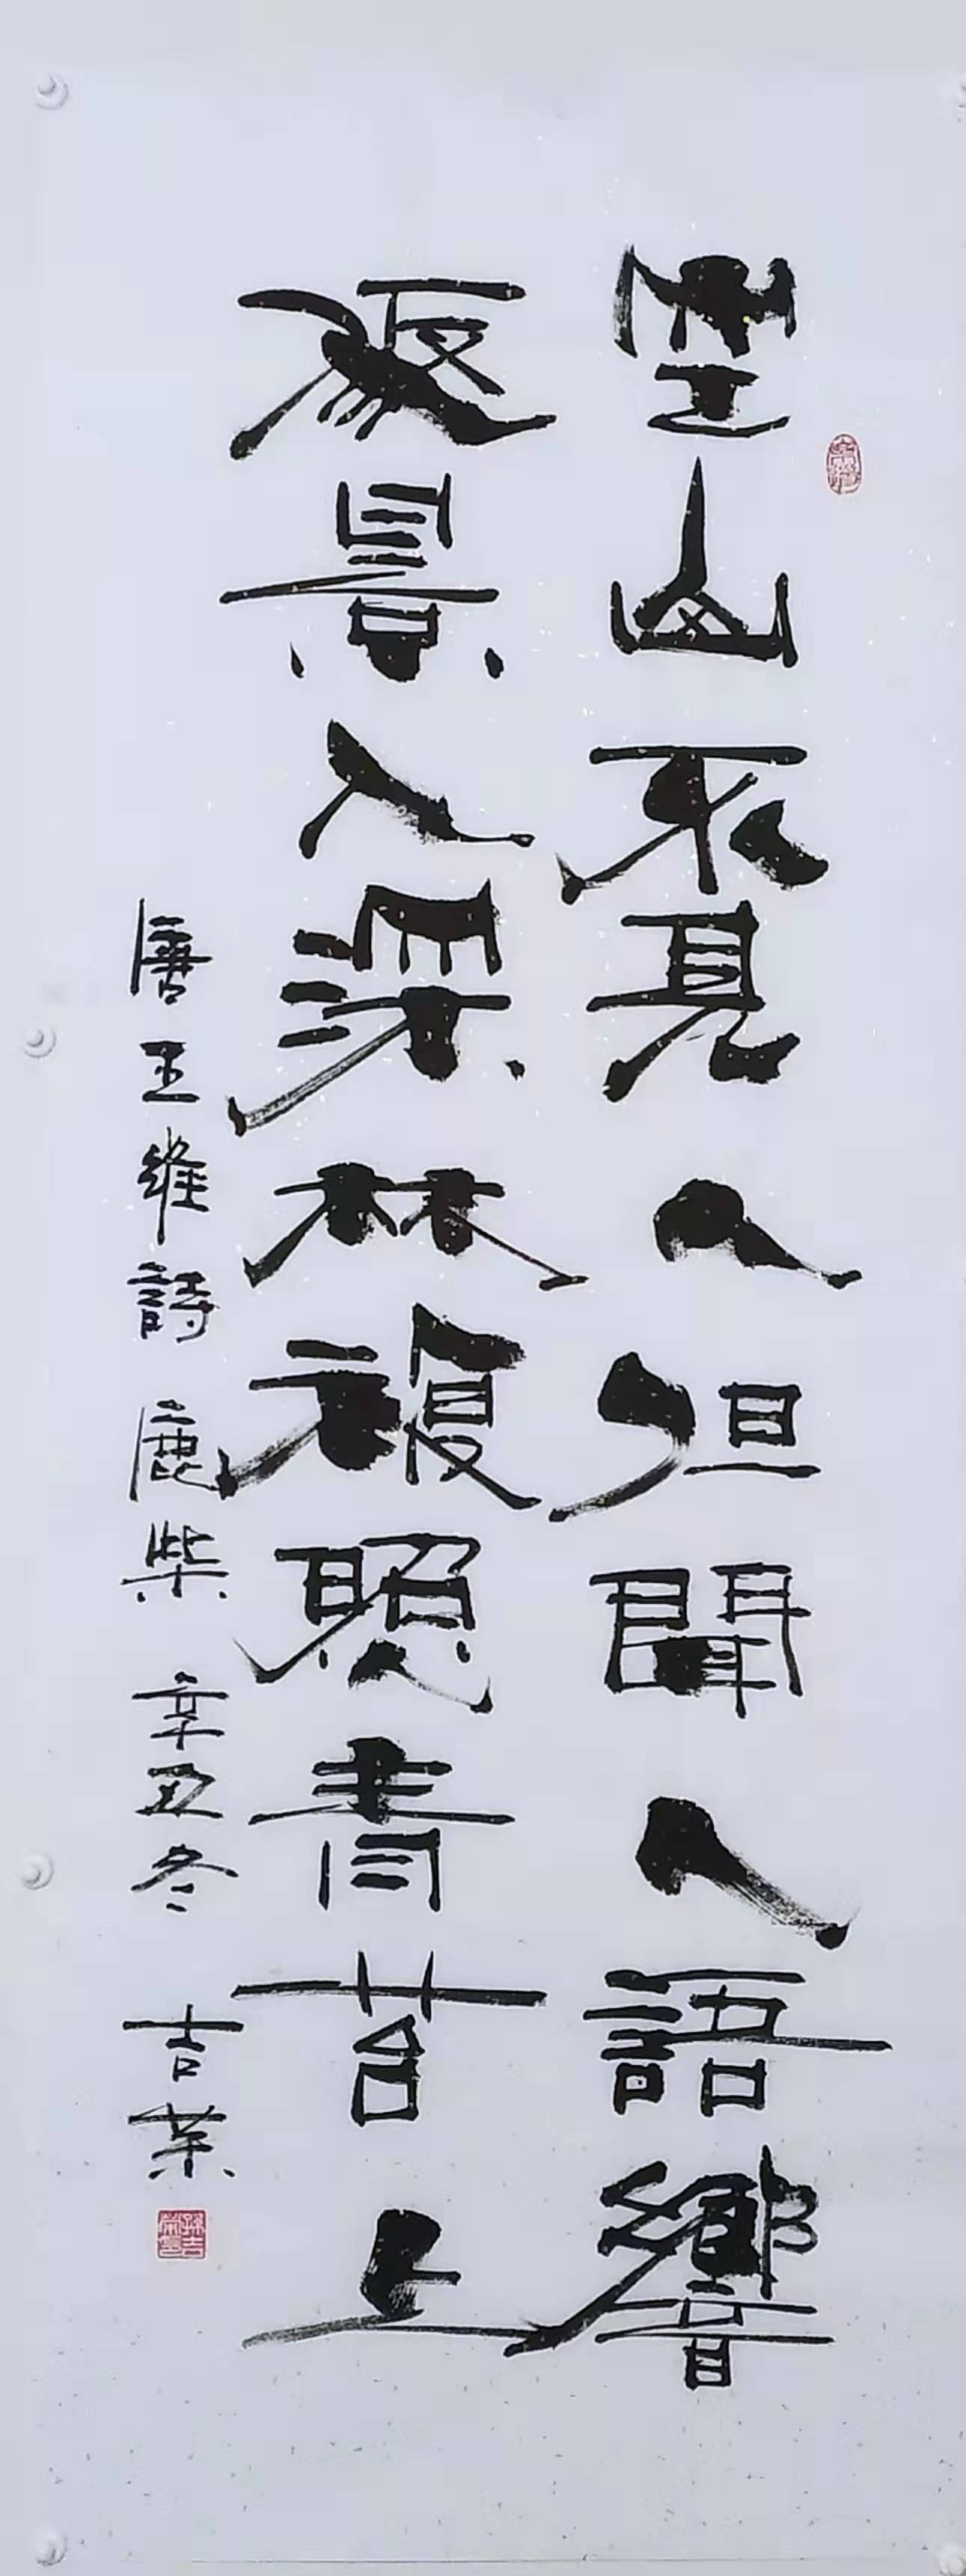 空山不見人但聞人語響
返景入深林複照青苔上
唐王維詩 鹿柴 辛丑冬 吉業